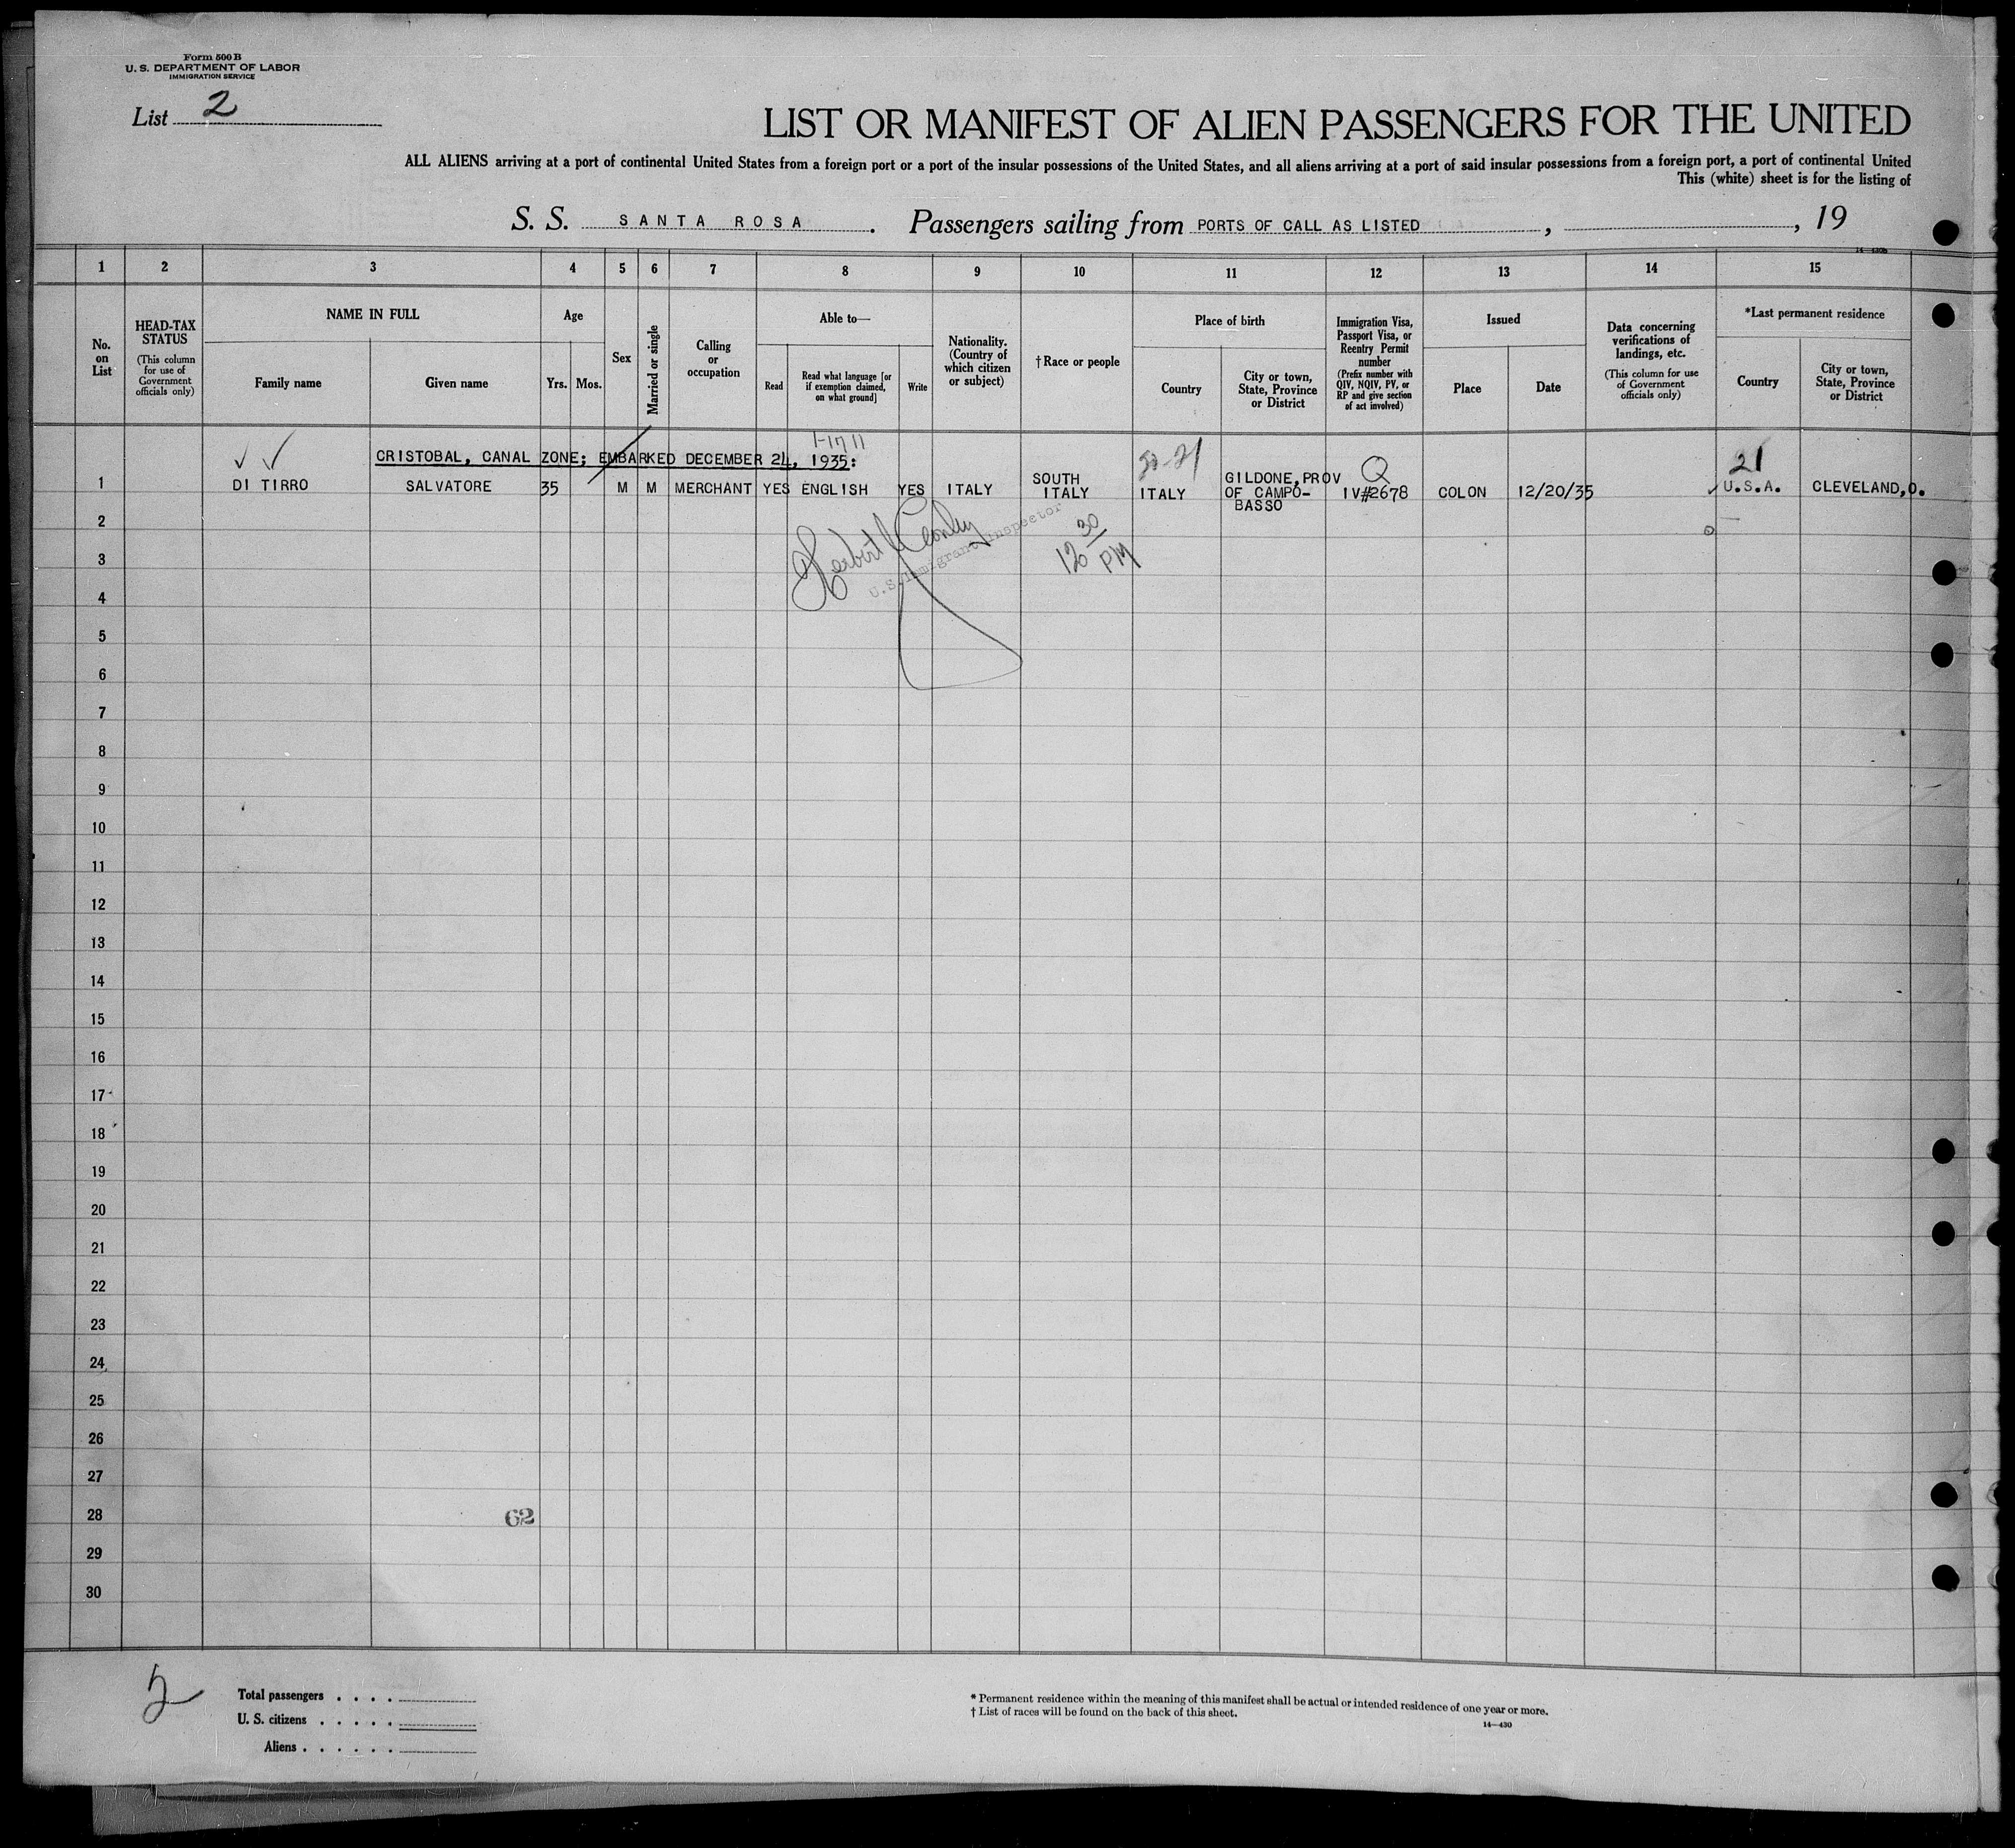 Form 500 B
U. S. DEPARTMENT OF LABOR
IMMIGRATION SERVICE
List 2
LIST OR MANIFEST OF ALIEN PASSENGERS FOR THE UNITED
ALL ALIENS arriving at a port of continental United States from a foreign port or a port of the insular possessions of the United States, and all aliens arriving at a port of said insular possessions from a foreign port, a port of continental United
This (white) sheet is for the listing of
S. S. SANTA ROSA. Passengers sailing from PORTS OF CALL AS LISTED, , 19
14—430b
1 2 3 4 5 6 7 8 9 10 11 12 13 14 15
No. on List
HEAD-TAX STATUS
(This column for use of Government officials only)
NAME IN FULL
Family name
Given name
Age
Yrs. Mos.
Sex
Married or single
Calling or occupation
Able to—
Read
Read what language [or if exemption claimed, on what ground]
Write
Nationality. (Country of which citizen or subject)
† Race or people
Place of birth
Country
City or town, State, Province or District
Immigration Visa, Passport Visa, or Reentry Permit number
(Prefix number with QIV, NQIV, PV, or RP and give section of act involved)
Issued
Place
Date
Data concerning verifications of landings, etc.
(This column for use of Government officials only)
*Last permanent residence
Country
City or town, State, Province or District
CRISTOBAL, CANAL ZONE; EMBARKED DECEMBER 24, 1935:
21
1 DI TIRRO SALVATORE 35 M M MERCHANT YES ENGLISH YES ITALY SOUTH ITALY ITALY GILDONE, PROV OF CAMPO-BASSO Q IV#2678 COLON 12/20/35 U.S.A. CLEVELAND, O.
U.S. Immigrant Inspector
12 30 PM
2
3
4
5
6
7
8
9
10
11
12
13
14
15
16
17
18
19
20
21
22
23
24
25
26
27
28
62
29
30
2
Total passengers . . . .
U. S. citizens . . . . .
Aliens . . . . . .
* Permanent residence within the meaning of this manifest shall be actual or intended residence of one year or more.
† List of races will be found on the back of this sheet.
14—430